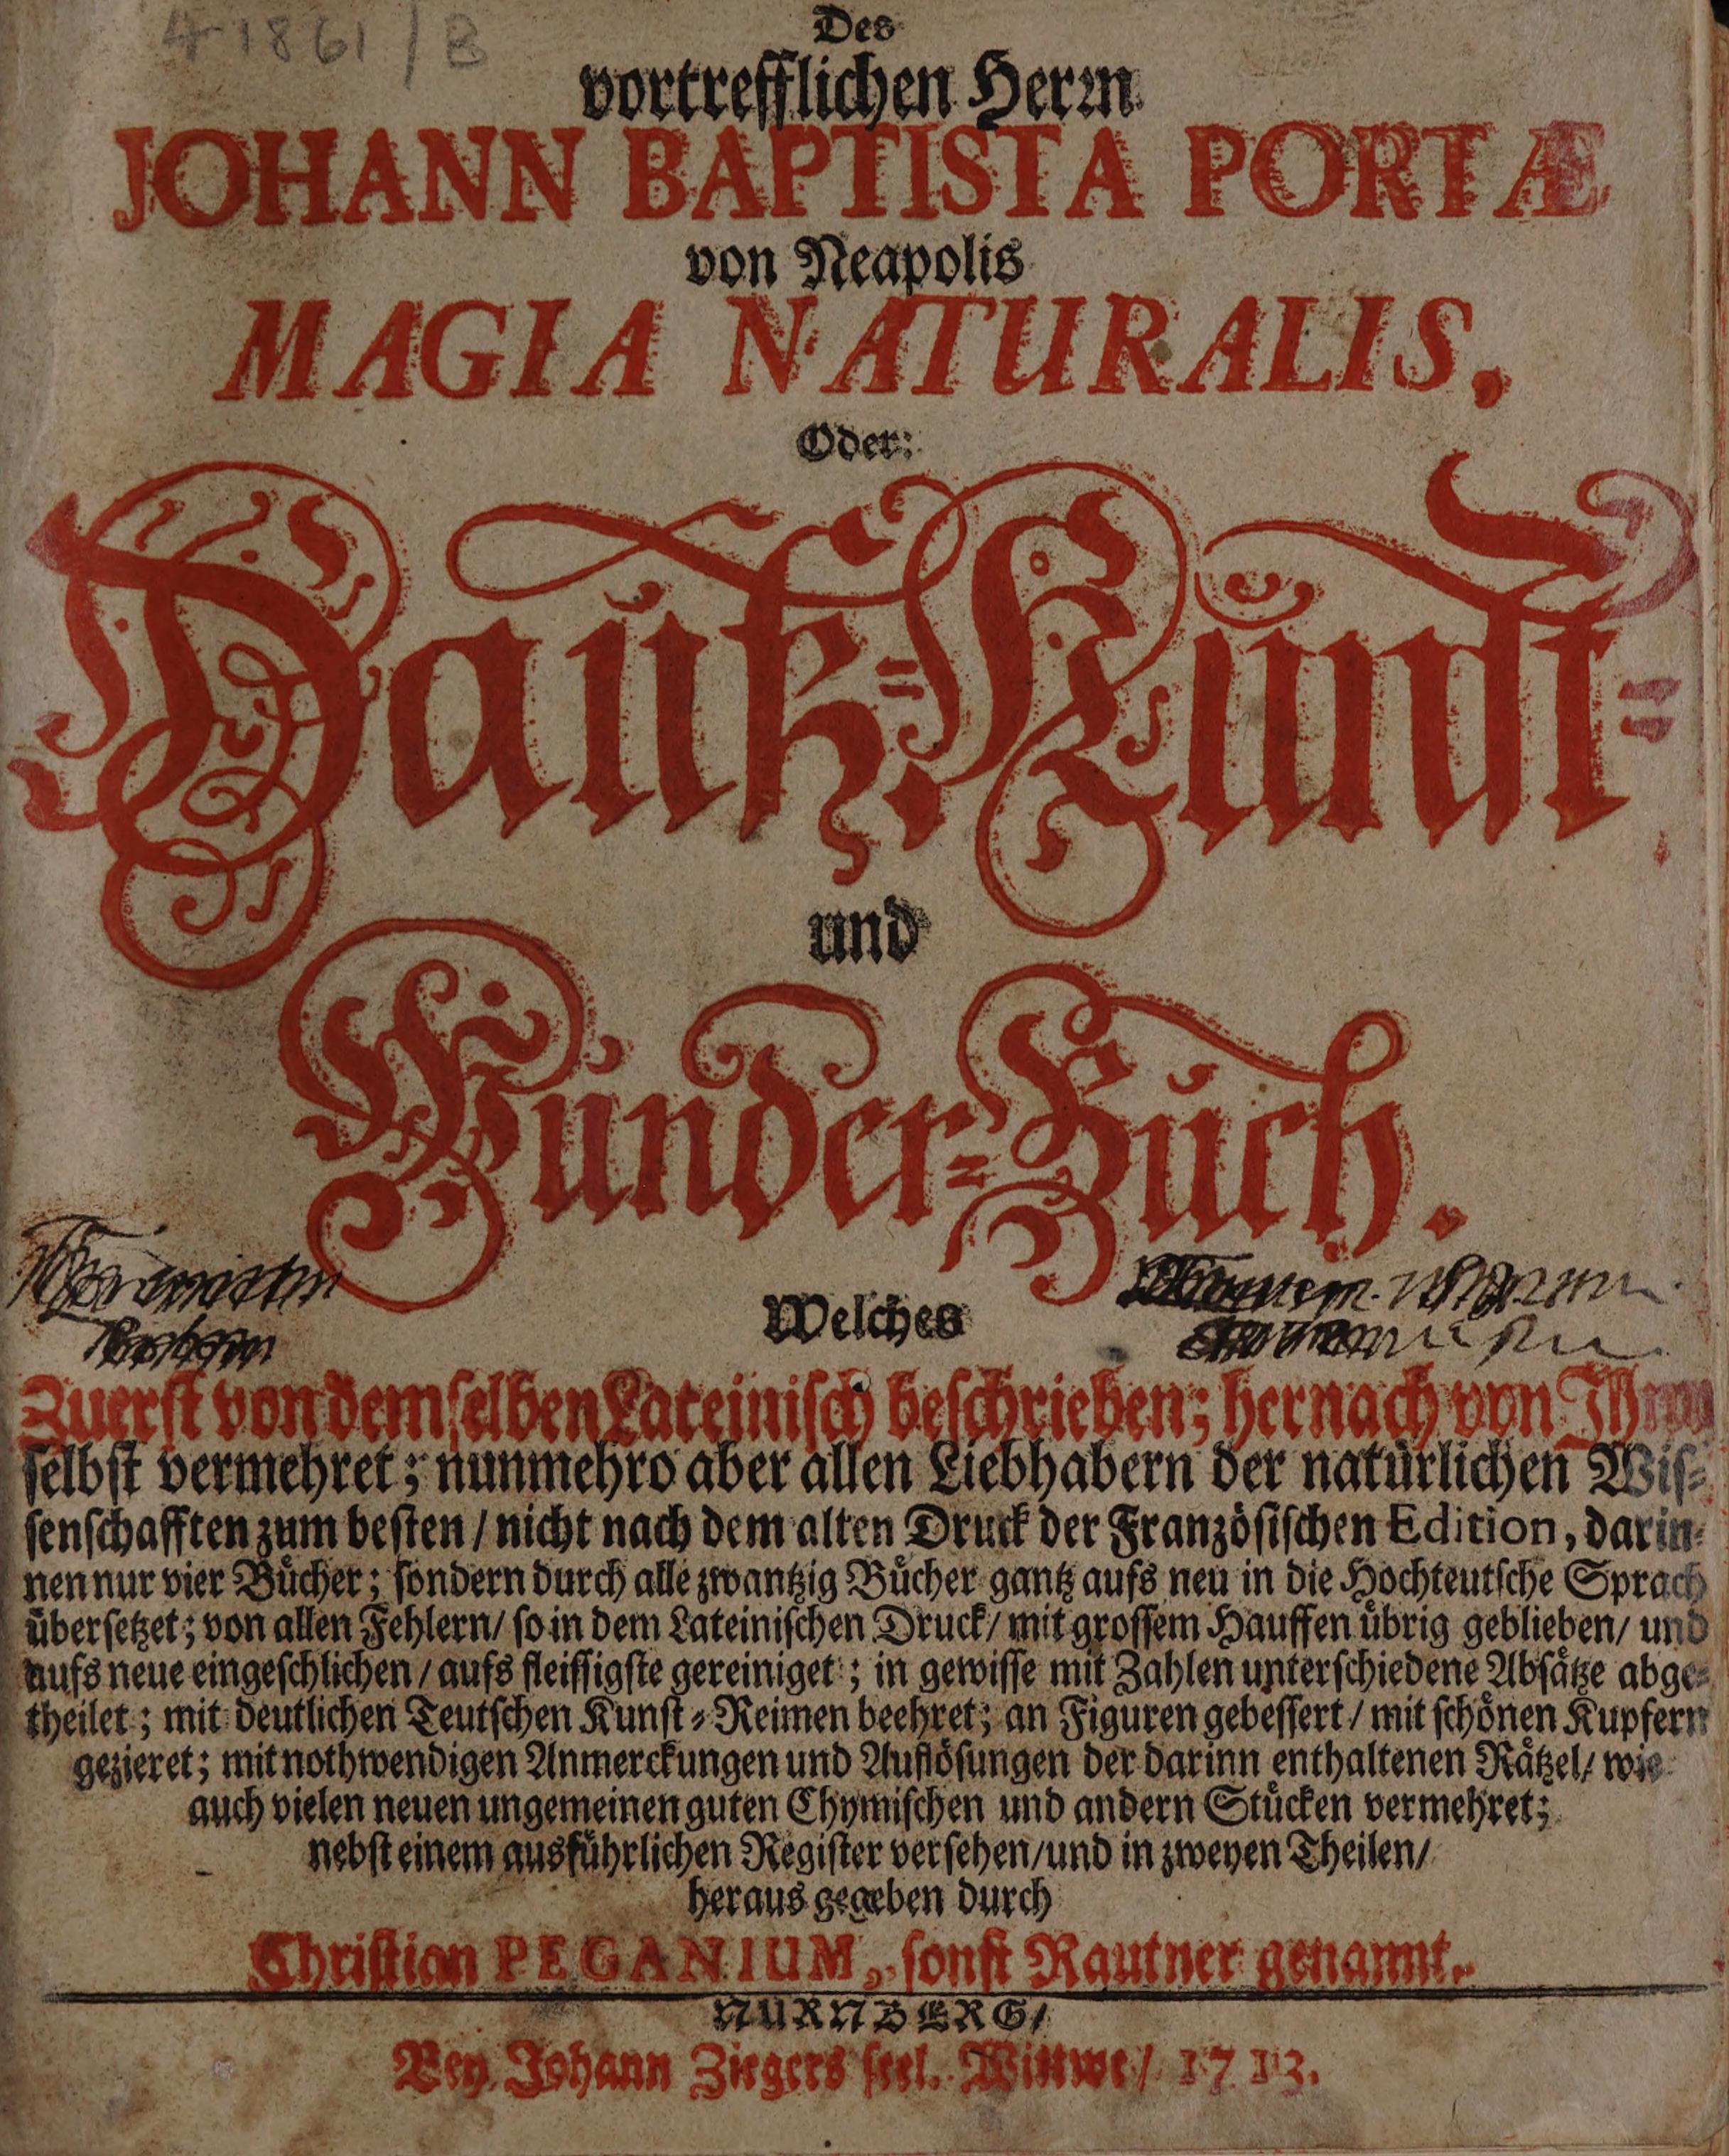 41861/B
Des
vortrefflichen Herrn
JOHANN BAPTISTA PORTÆ
von Neapolis
MAGIA NATURALIS,
Oder:
Hauß-Kunst-
und
Wunder-Buch.
Welches
Zuerst von demselben Lateinisch beschrieben; hernach von Ihm
selbst vermehret; nunmehro aber allen Liebhabern der natürlichen Wis-
senschafften zum besten / nicht nach dem alten Druck der Französischen Edition, darin-
nen nur vier Bücher; sondern durch alle zwantzig Bücher gantz aufs neu in die Hochteutsche Sprach
übersetzet; von allen Fehlern/ so in dem Lateinischen Druck/ mit grossem Hauffen übrig geblieben/ und
aufs neue eingeschlichen / aufs fleissigste gereiniget; in gewisse mit Zahlen unterschiedene Absätze abge-
theilet; mit deutlichen Teutschen Kunst-Reimen beehret; an Figuren gebessert / mit schönen Kupfern
gezieret; mit nothwendigen Anmerckungen und Auflösungen der darinn enthaltenen Rätzel/ wie
auch vielen neuen ungemeinen guten Chymischen und andern Stücken vermehret;
nebst einem ausführlichen Register versehen/und in zweyen Theilen/
heraus gegeben durch
Christian PEGANIUM, sonst Rautner genannt.
NURNBERG/
Bey Johann Ziegers seel. Wittwe/ 1713.